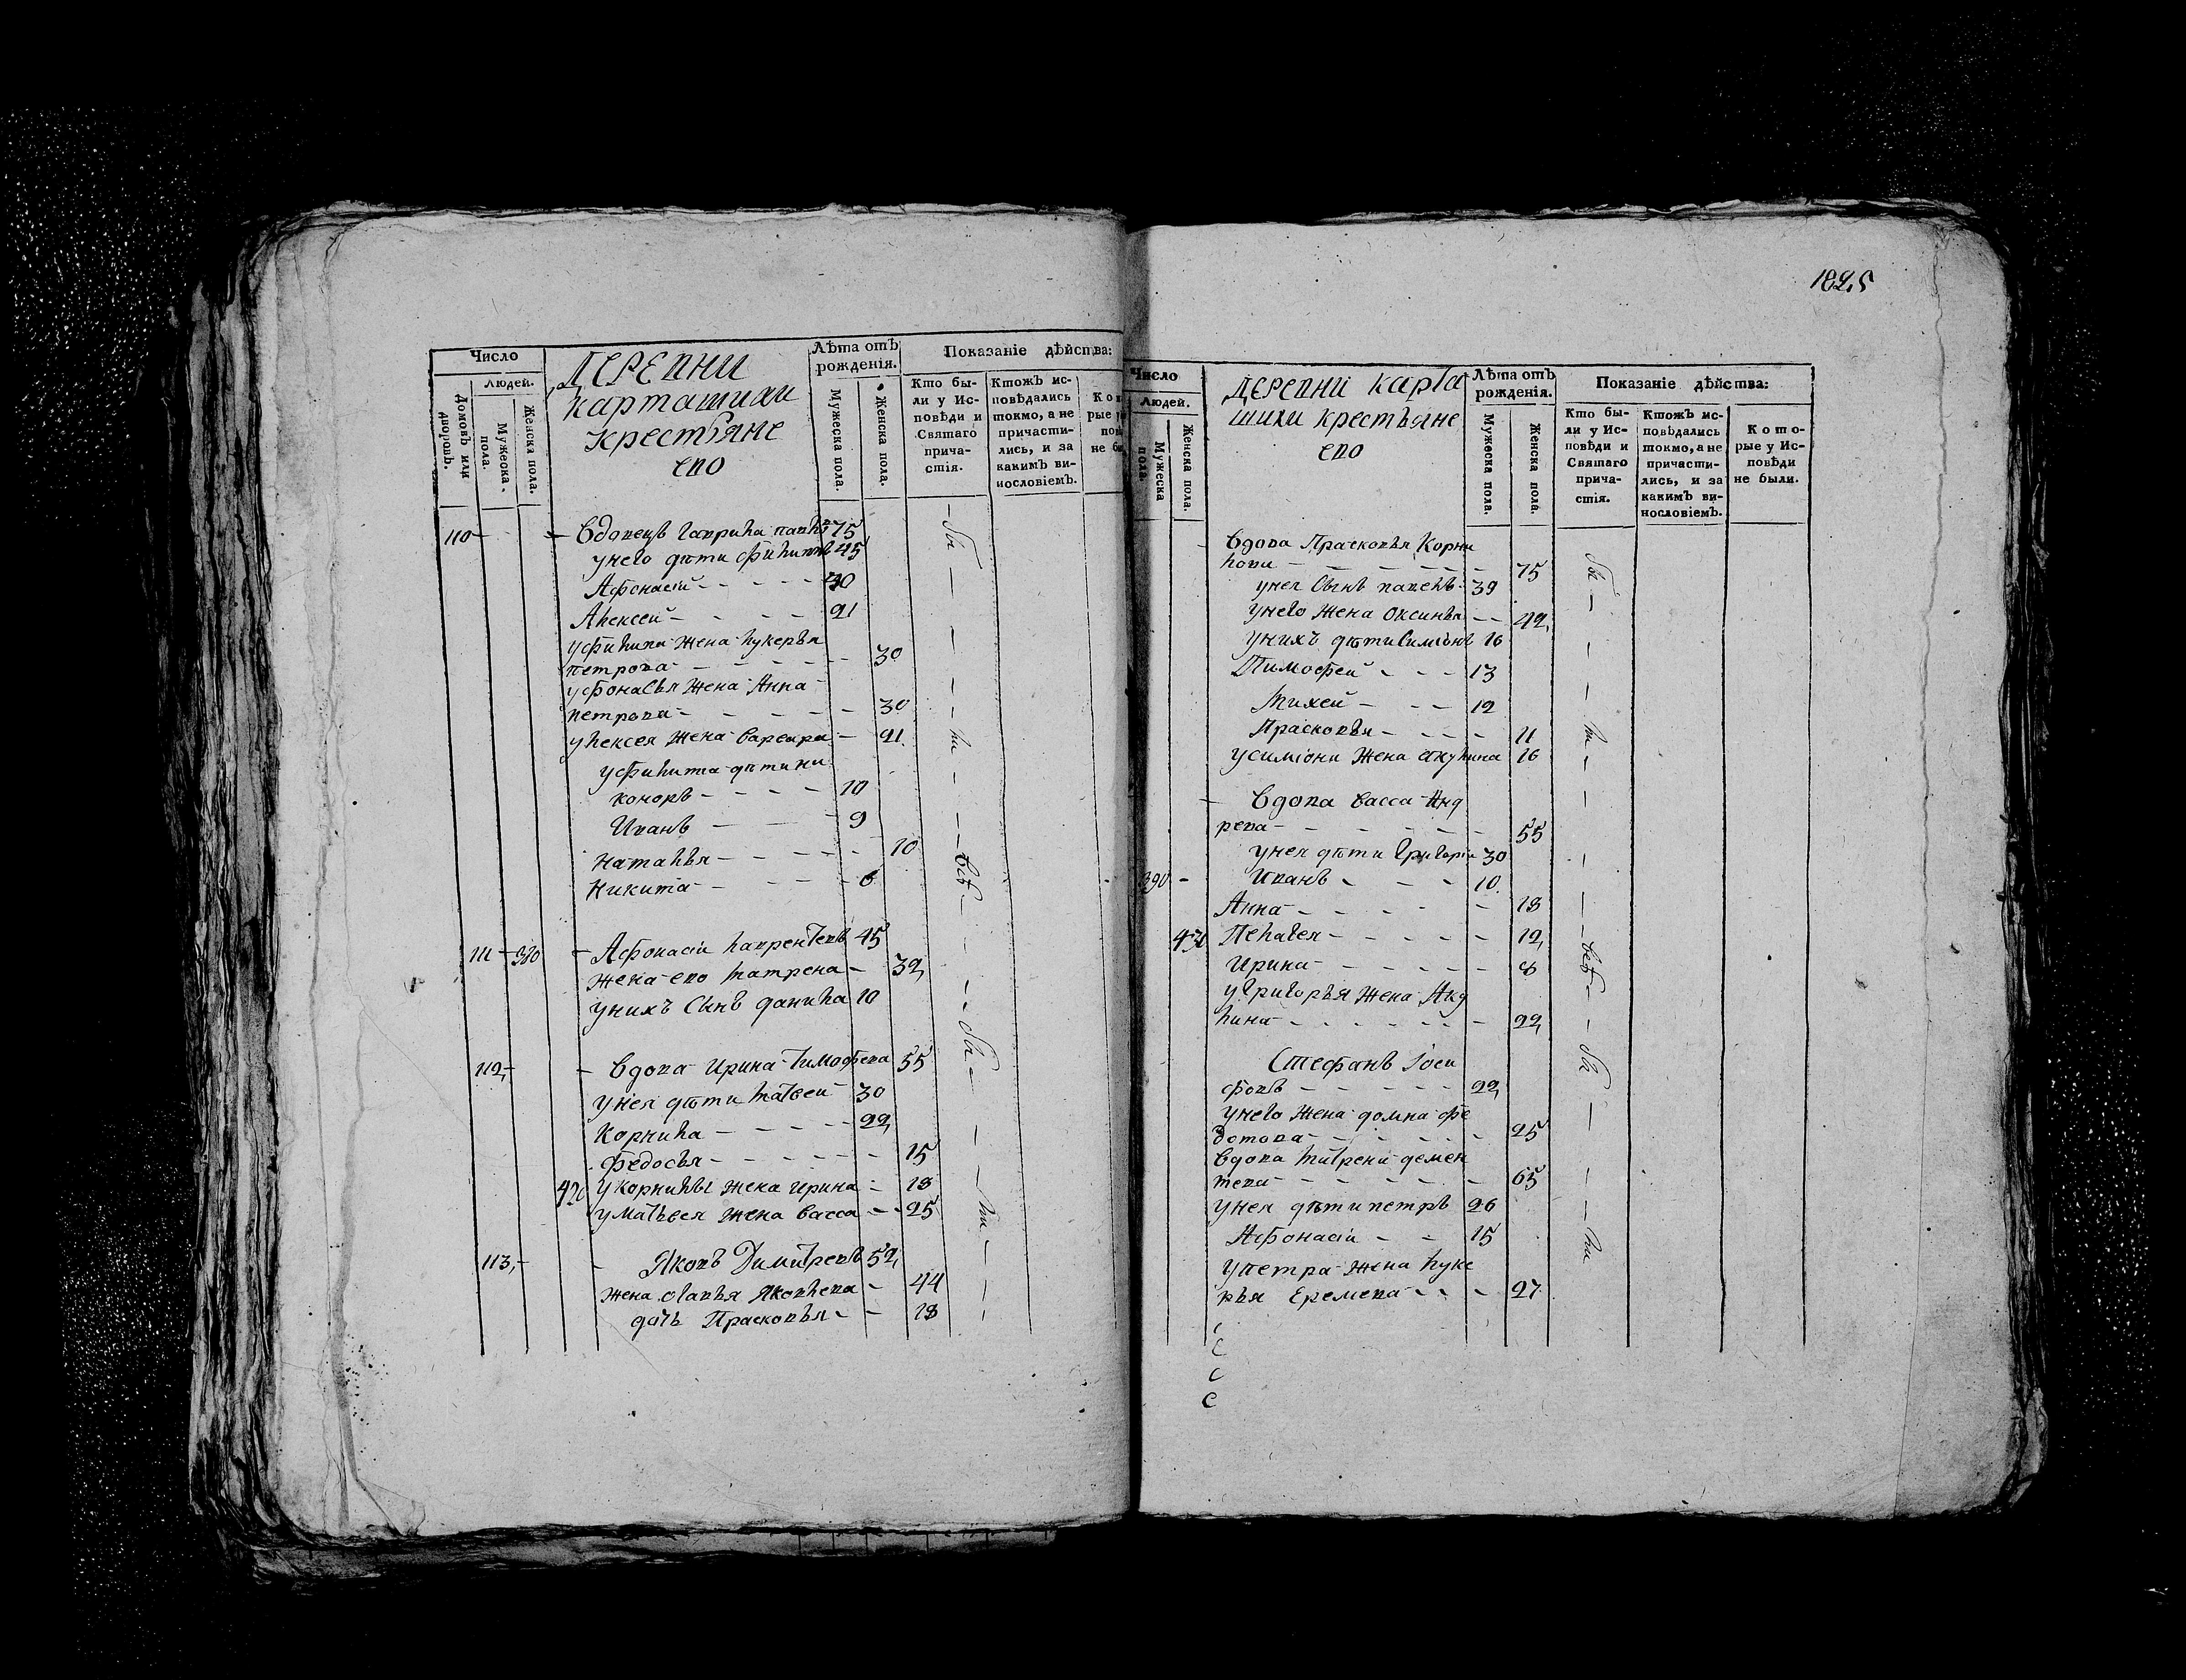 Число
Людей.
Домовъ или дворовъ.
Мужеска пола.
Женска пола.
Деревни
карташихи
крестьяне
ево
Лѣта отъ рожденія.
Мужеска пола.
Женска пола.
Показаніе дѣйства:
Кто бы-
ли у Ис-
повѣди и
Святаго
прича-
стія.
Ктожъ ис-
повѣдались
токмо, а не
причасти-
лись, и за
какимъ ви-
нословіемъ.
110 - - вдовецъ гаврила павлв 75
унего дѣти филиппъ 45
Афонасіи - - - - 30
Алексеи - - - - 21
уфилипа жена лукерья
петрова - - - - 30
уфонасья жена Анна
петрова - - - - 30
улексея жена варвара - 21
уфилипа дѣти ни
коноръ - - - - 10
Иванъ - - - 9
наталья - - - - 10
Никита - - - - 6
бы - ли - всѣ
111 - 380 - Афонасіи лаврентевъ 45
жена ево матрена - 32
унихъ сынъ данила 10
112 - - вдова ирина тимофева 55
унея дѣти матвеи 30
Корнила - - - - 22
федосья - - - - 15
420 укорнилы жена ирина - 18
уматвея жена васса - - 25
113 - - Яковъ Димитревъ 52
жена ѳавья яковлева - 44
дочь Прасковья - - 18
бы - ли
1825
Число
Людей.
Мужеска пола.
Женска пола.
Деревни карта
шихи крестьяне
ево
Лѣта отъ рожденія.
Мужеска пола.
Женска пола.
Показаніе дѣйства:
Кто бы-
ли у Ис-
повѣди и
Святаго
прича-
стія.
Ктожъ ис-
повѣдались
токмо, а не
причасти-
лись, и за
какимъ ви-
нословіемъ.
Кото-
рые у Ис-
повѣди
не были.
- вдова Прасковья Корни
лова - - - - - 75
унея сынъ павелъ - 39
унего жена Оксинья - - 42
унихъ дѣти Симіонъ 16
Тимофеи - - - 13
Михеи - - - 12
Прасковья - - - - 11
усиміона жена акулина 16
- вдова васса Анд
рева - - - - - 55
унея дѣти григорiи 30
390 - Иванъ - - - 10
Анна - - - - - 18
430 Пелагея - - - - - 12
Ирина - - - - - 8
угригорья жена Аку
лина - - - - - 22
Стефанъ Іоси
фовъ - - - - - 22
унего жена домна фе
дотова - - - - - 25
вдова матрена демен
тева - - - - - 65
унея дѣти петръ 26
Афонасіи - - 15
упетра жена луке
рья Еремева - - - 27
бы - ли - всѣ - бы - ли